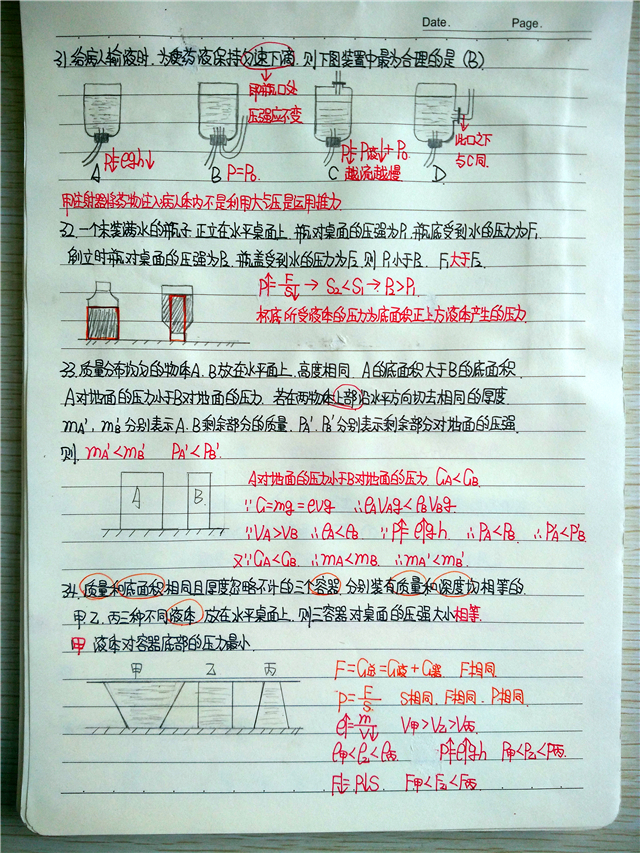 Date. Page.
31. 给病人输液时,为使药液保持匀速下滴,则下图装置中最为合理的是 (B)
即瓶口处
压强应不变
A P↓=ρgh↓
B P=P₀
C P↓=P液↓+P₀
越流越慢
D
此口之下
与C同
甲注射器将药物注入病人体内不是利用大气压是运用推力
32. 一个未装满水的瓶子,正立在水平桌面上,瓶对桌面的压强为P₁,瓶底受到水的压力为F₁
倒立时瓶对桌面的压强为P₂,瓶盖受到水的压力为F₂,则P₁小于P₂ F₁大于F₂
P↑=F/S↓ → S₂<S₁ → P₂>P₁
杯底所受液体的压力为底面积正上方液体产生的压力
33. 质量分布均匀的物体A、B放在水平面上,高度相同,A的底面积大于B的底面积
A对地面的压力小于B对地面的压力,若在两物体上部沿水平方向切去相同的厚度
mA′、mB′分别表示A、B剩余部分的质量,PA′、PB′分别表示剩余部分对地面的压强
则 mA′<mB′ PA′<PB′
A B
A对地面的压力小于B对地面的压力 GA<GB
∵G=mg=ρvg ∴ρAVAg<ρBVBg
∵VA>VB ∴ρA<ρB ∵P↑=ρ↑gh ∴PA<PB ∴PA′<PB′
又∵GA<GB ∴mA<mB ∴mA′<mB′
34. 质量和底面积相同且厚度忽略不计的三个容器,分别装有质量和深度均相等的
甲、乙、丙三种不同液体,放在水平桌面上,则三容器对桌面的压强大小相等
甲液体对容器底部的压力最小
甲 乙 丙
F=G总=G液+G器 F相同
P=F/S S相同,F相同,P相同
ρ↑=m/V↓ V甲>V乙>V丙
ρ甲<ρ乙<ρ丙 P↑=ρ↑gh P甲<P乙<P丙
F↓=P↓S F甲<F乙<F丙